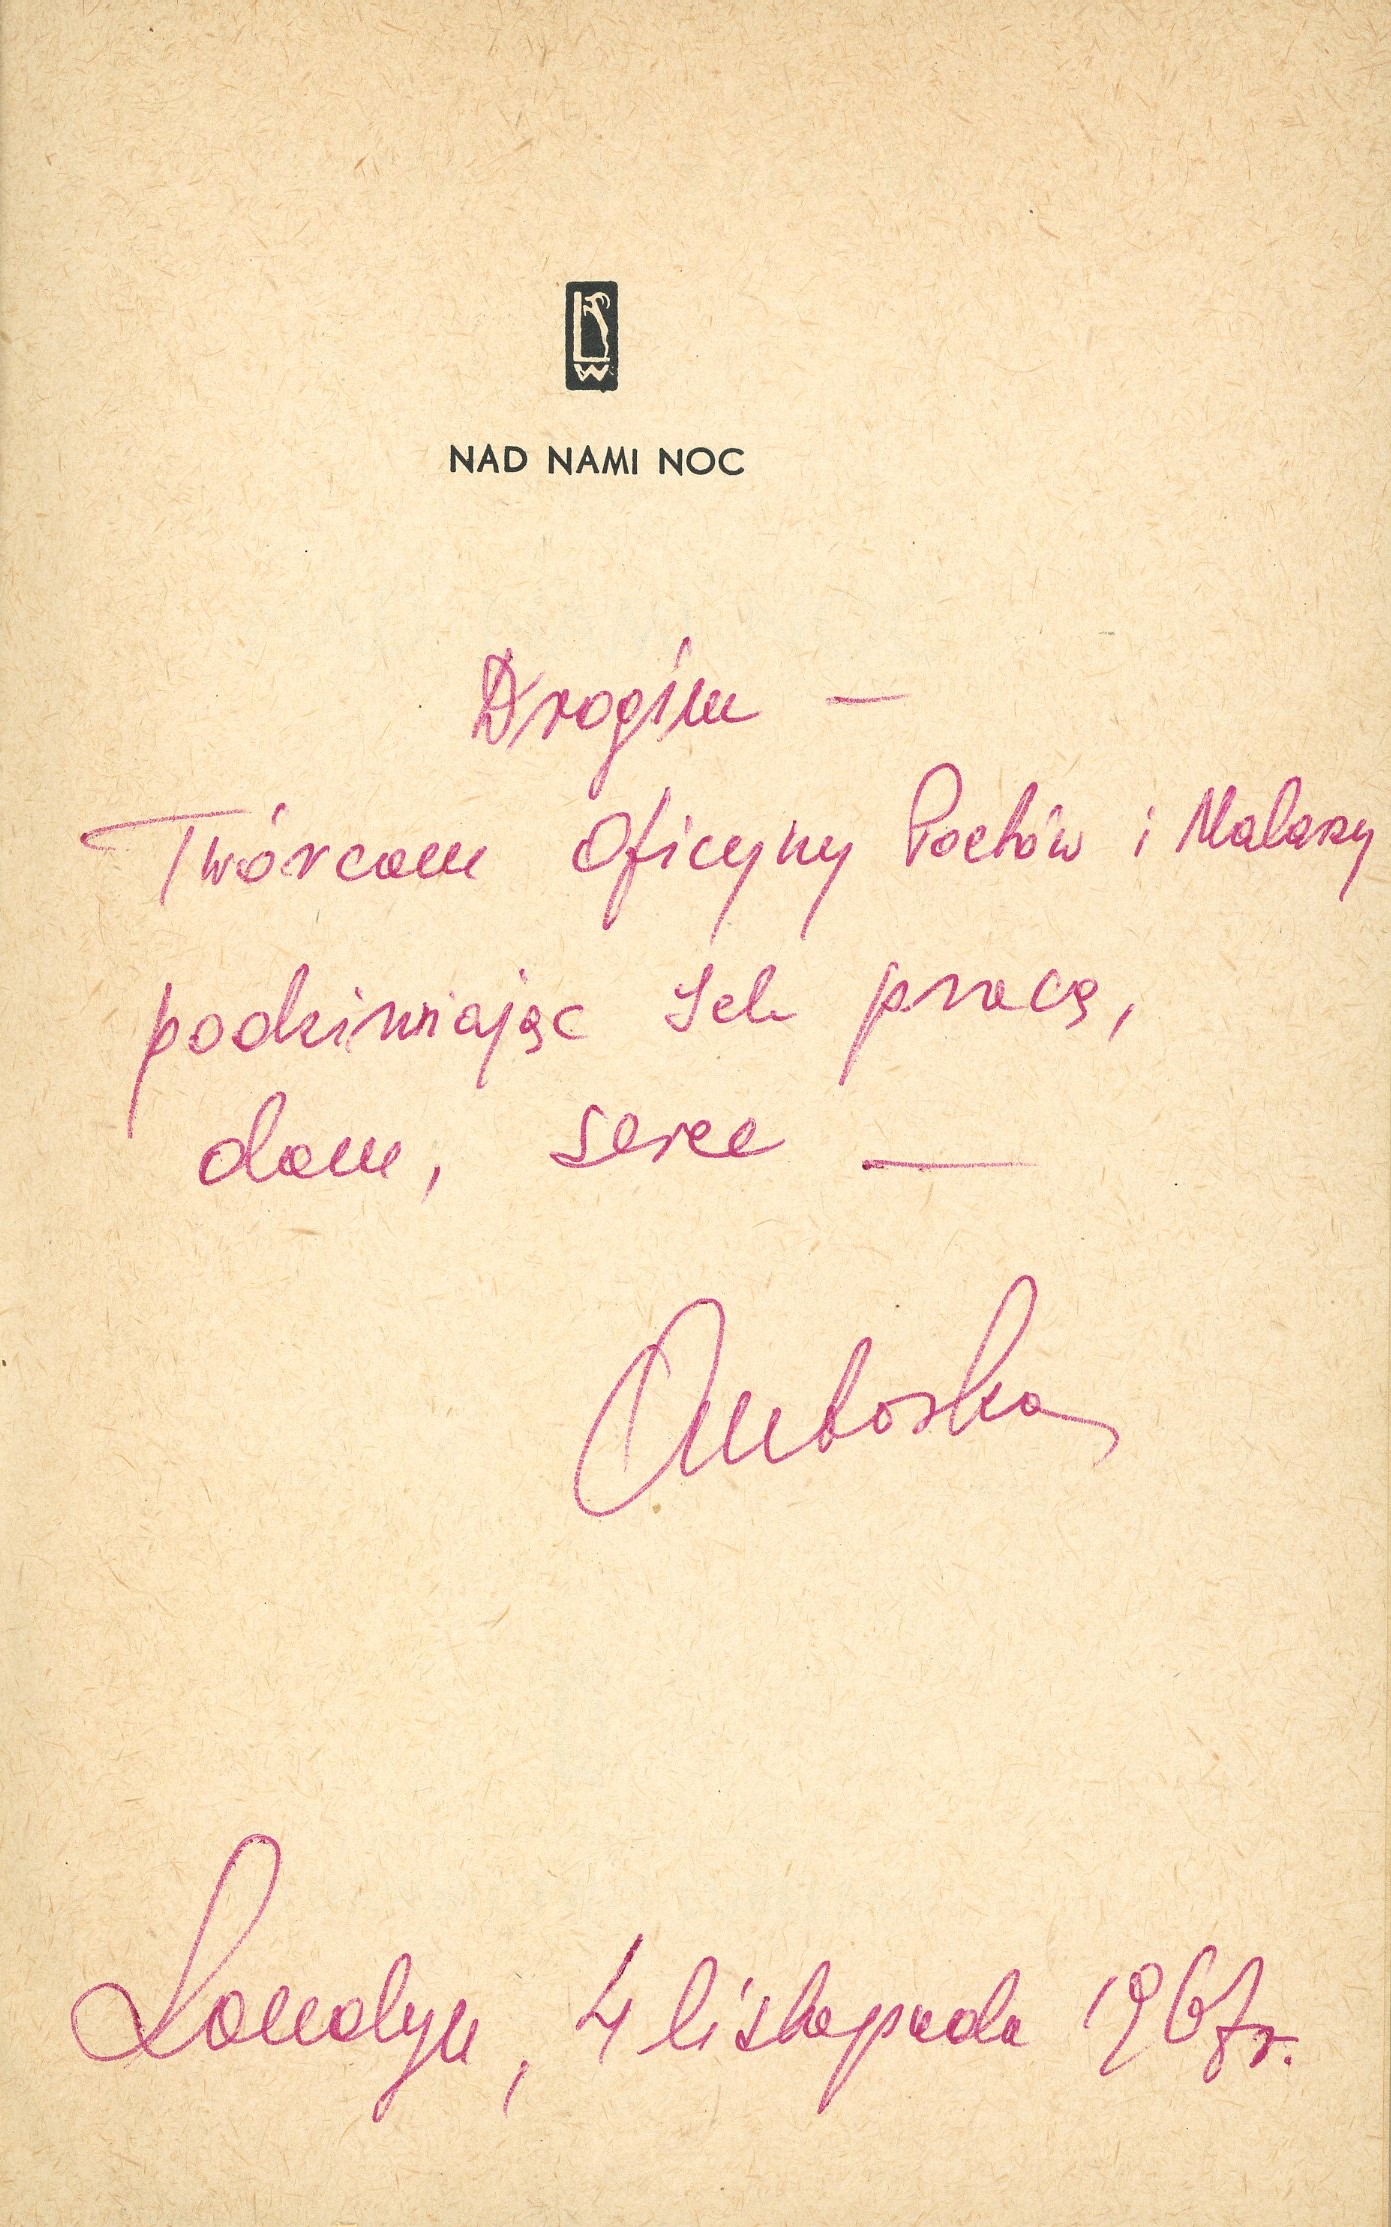 W
NAD NAMI NOC
Drogim —
Twórcom Oficyny Poetów i Malarzy
podziwiając Ich pracę,
dom, serce —
Londyn, 4 listopada 1967 r.